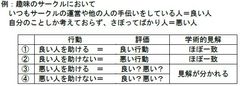 例：趣味のサークルにおいて
いつもサークルの運営や他の人の手伝いをしている人＝良い人
自分のことしか考えておらず、さぼってばかり人＝悪い人
行動 評価 学術的見解
① 良い人を助ける ＝ 良い行動 ほぼ一致
② 良い人を助けない ＝ 悪い行動 ほぼ一致
③ 悪い人を助ける ＝ 良い？悪い？ 見解が分かれる
④ 悪い人を助けない ＝ 良い？悪い？